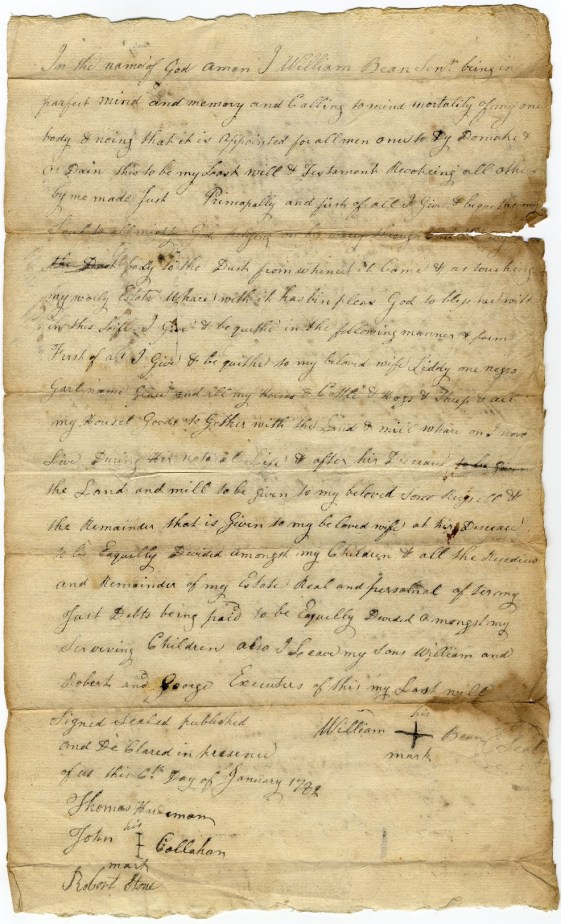 In the name of God amen I William Bean Senr. being in
parfect mind and memory and Calling to mind mortality of my one
body & noing that it is Appointed for all men ones to Dy Do make &
or Dain this to be my Last will & Testament Revokeing all other
by me made Just Prinsopally and first of all I Give & bequethe my
Soul to allmighty God
the Dust body to the Dust from whence it Came & as touching
my worly Estate Whare with it has bin pleas God to bless me with
in this Life I Give & be quethe in the following manner & form
First of all I Give & be quithe to my beloved wife Liddy one negro
Garl name and all my Horses & Cattle & Hogs & Sheep & all
my Housel Goods to Gether with the Land & mill whare on I now
Live During Her natral Life & after hir Deceas to be
the Land and mill to be given to my beloved Son &
the Remainder that is Given to my beloved wife at hir Decease
to be Equilly Devided amongst my Children & all the
and Remainder of my Estate Real and personal after my
Just Debts being paid to be Equilly Devided amongst my
Serviving Children also I Leave my Sons William and
Robert and George Executers of this my Last will
Signed Sealed published
and De Clared in presence
of us this 6th Day of January 1782
William his + mark Bean Seal
Thomas Hardeman
John his I mark Callahan
Robert Stone